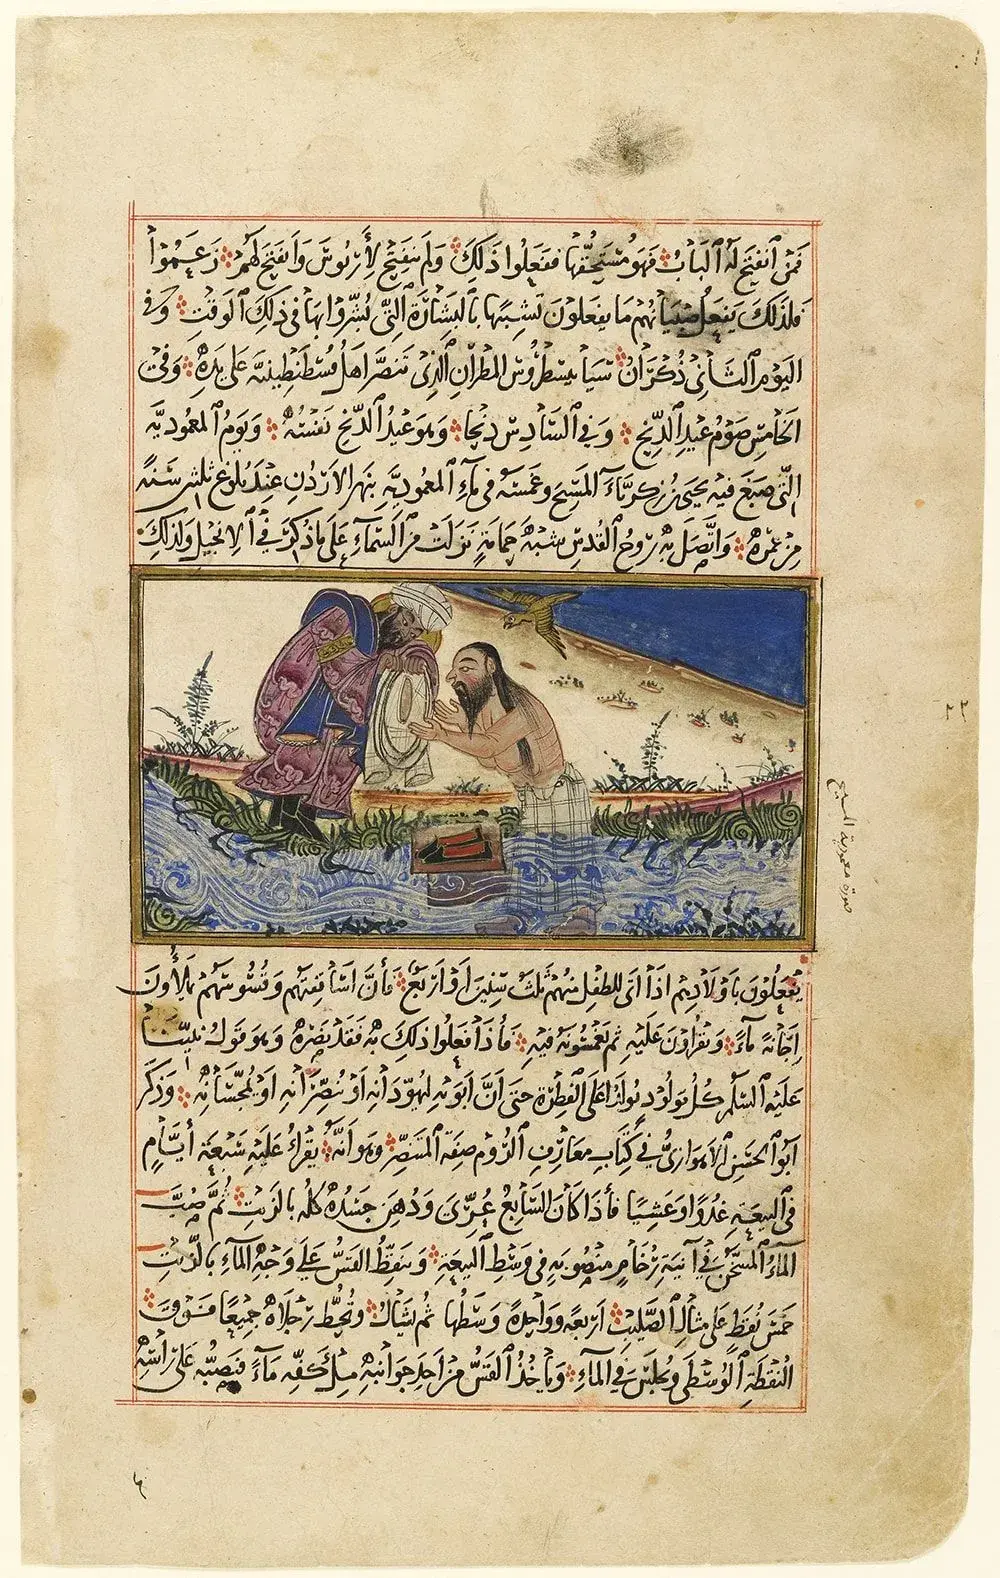 فمن انفتح له الباب فهو مستحقها ففعلوا ذلك ولم ينفتح لأريوس وانفتح لهم زعموا
فلذلك يفعل صبيانهم ما يفعلون تشبها بالبشارة التي بشروا بها في ذلك الوقت وفي
اليوم الثاني ذكران المطران الذي تنصر اهل قسطنطينية على يده وفي
الخامس صوم عيد الدنح وفي السادس دنحا وهو عيد الدنح نفسه ويوم المعمودية
التي صبغ فيه يحيى بن زكرياء المسيح وغمسه في ماء المعمودية بنهر الاردن عند بلوغ ثلثين سنة
من عمره واتصل به روح القدس شبه حمامة نزلت من السماء على ما ذكر في الانجيل ولذلك
صورة معمودية المسيح
٢٢
يفعلون باولادهم اذا اتى للطفل منهم ثلث سنين او اربع فأن اساقفتهم وقسوسهم يملأون
اجانة ماء ويقرأون عليه ثم يغمسونه فيه فأذا فعلوا ذلك به فقد نصره وهو قول نبينا
عليه السلم كل مولود يولد على الفطرة حتى أن أبويه ليهودانه او ينصرانه او يمجسانه وذكر
ابو الحسين الاهوازي في كتاب معارف الروم صفة المتنصر وهو انه يقرأ عليه سبعة أيام
في البيعة غدوا وعشيا فأذا كان السابع عري ودهن جسده كله بالزيت ثم صب
الماء المسخن في آنية رخام منصوبة في وسط البيعة وينقط القس على وجه الماء بالزيت
خمس نقط على مثال الصليب اربعة وواحدة وسطها ثم يشال وتحط رجلاه جميعا فوق
النقطة الوسطى ويجلس في الماء ويأخذ القس من احد جوانبه ملء كفه ماء فيصبه على رأسه